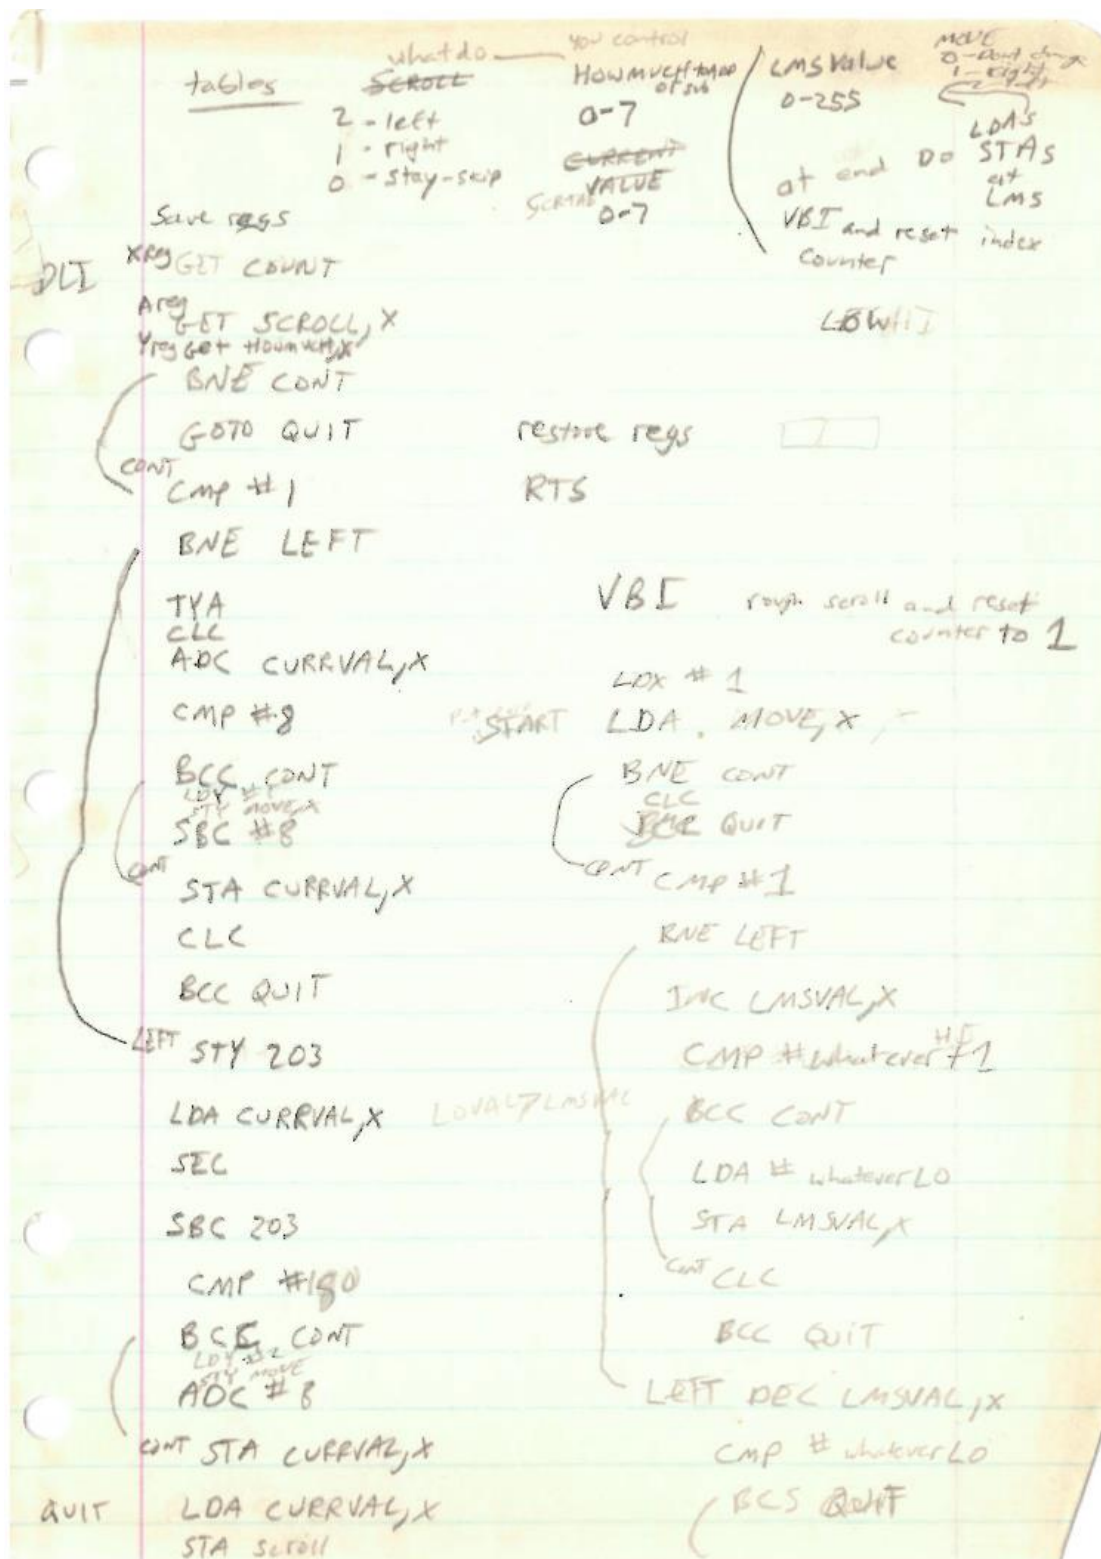 what do
tables
SCROLL
2 - left
1 - right
0 - stay-skip
you control
HOWMUCH to ADD
or sub
0-7
CURRENT
VALUE
0-7
LMS Value
0-255
MOVE
0 - Dont change
1 - right
at end DO LDA'S
STAs
at
LMS
VBI and reset index
counter
Save regs
DLI
Xreg GET COUNT
Areg
GET SCROLL,X
Yreg Get Howmuch,X
BNE CONT
GOTO QUIT
CONT
Cmp #1
BNE LEFT
TYA
CLC
ADC CURRVAL,X
CMP #8
BCC CONT
STY MOVE,X
SBC #8
CONT
STA CURRVAL,X
CLC
BCC QUIT
LEFT STY 203
LDA CURRVAL,X
SEC
SBC 203
CMP #180
CONT
LDY #2
STY MOVE
ADC #8
CONT STA CURRVAL,X
QUIT LDA CURRVAL,X
STA scroll
restore regs
RTS
VBI rough scroll and reset
counter to 1
LDX #1
START LDA MOVE,X
BNE CONT
CLC
QUIT
CONT CMP #1
BNE LEFT
INC LMSVAL,X
CMP #whatever HI+1
BCC CONT
LDA # whatever LO
STA LMSVAL,X
CONT CLC
BCC QUIT
LEFT DEC LMSVAL,X
CMP # whatever LO
BCS QUIT